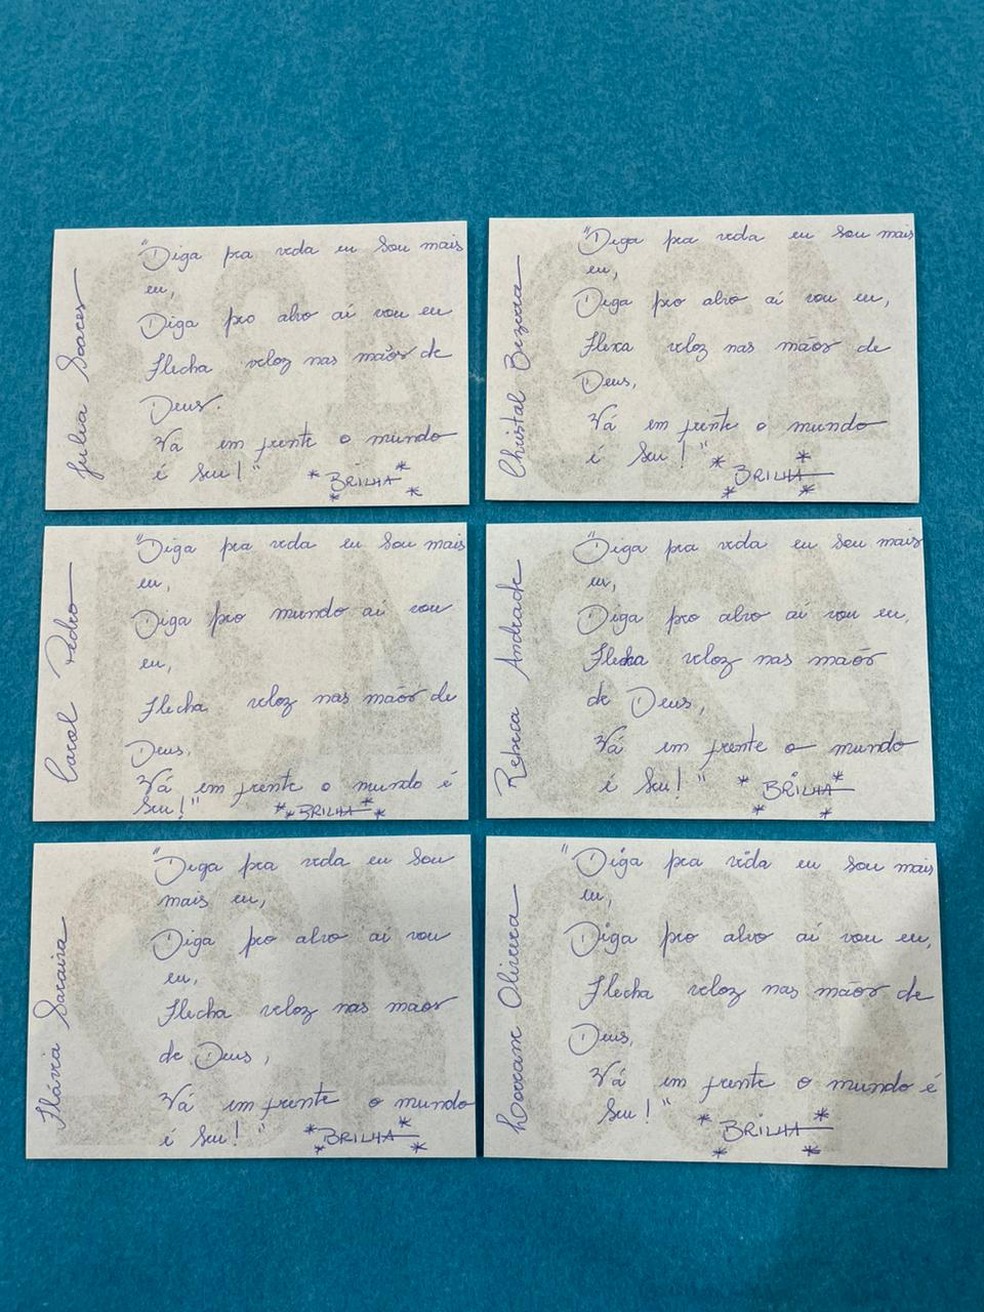 Julia Soares
"Diga pra vida eu sou mais
eu,
Diga pro alvo aí vou eu
Flecha veloz nas mãos de
Deus.
Vá em frente o mundo
é seu!" *BRILHA*
* *
Christal Bezerra
"Diga pra vida eu sou mais
eu,
Diga pro alvo aí vou eu,
Flexa veloz nas mãos de
Deus,
Vá em frente o mundo
é seu!" *BRILHA*
* *
Carol Pedro
"Diga pra vida eu sou mais
eu,
Diga pro mundo aí vou
eu,
Flecha veloz nas mãos de
Deus,
Vá em frente o mundo é
seu!" *BRILHA*
* *
Rebeca Andrade
"Diga pra vida eu sou mais
eu,
Diga pro alvo aí vou eu,
Flecha veloz nas mãos
de Deus,
Vá em frente o mundo
é seu!" *BRILHA*
* *
Flávia Saraiva
"Diga pra vida eu sou
mais eu,
Diga pro alvo aí vou
eu,
Flecha veloz nas mãos
de Deus,
Vá em frente o mundo
é seu!" *BRILHA*
* *
Lorrane Oliveira
"Diga pra vida eu sou mais
eu,
Diga pro alvo aí vou eu,
Flecha veloz nas mãos de
Deus,
Vá em frente o mundo é
seu!" *BRILHA*
* *